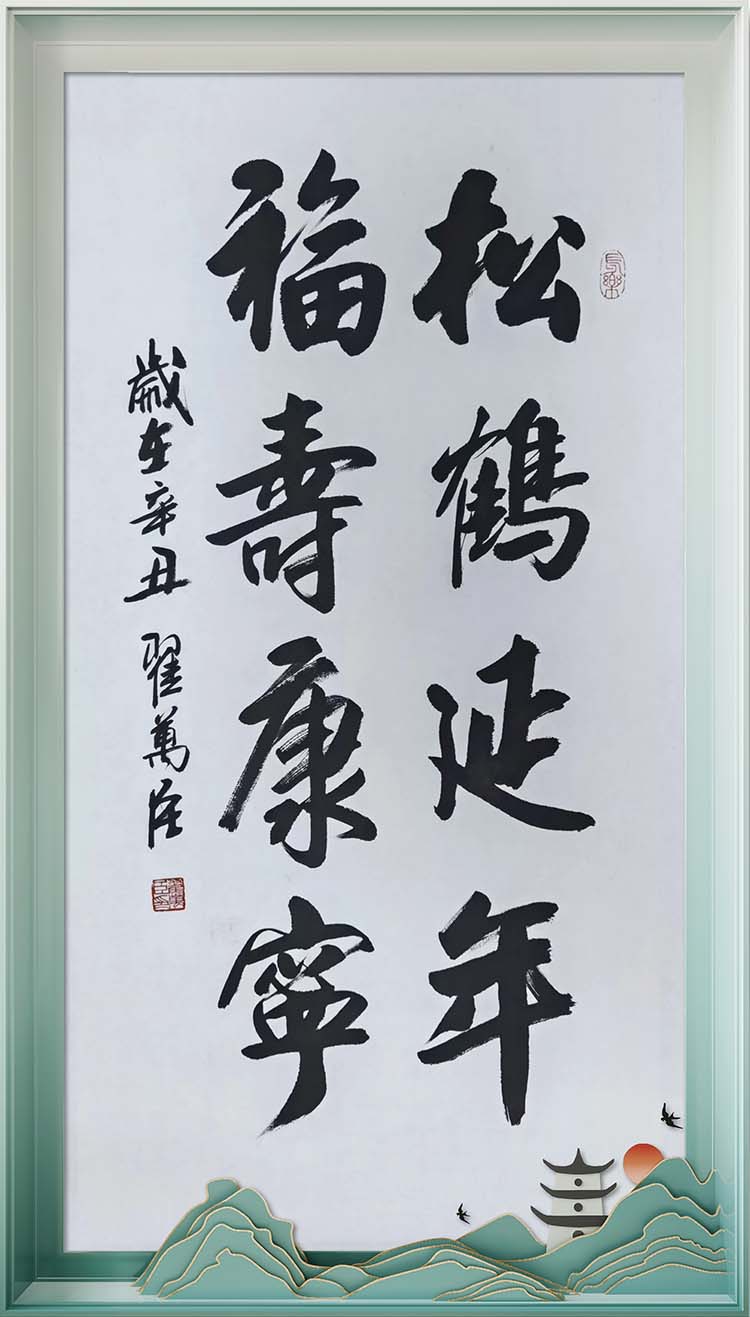 長樂
松鶴延年
福壽康寧
歲在辛丑 翟萬臣